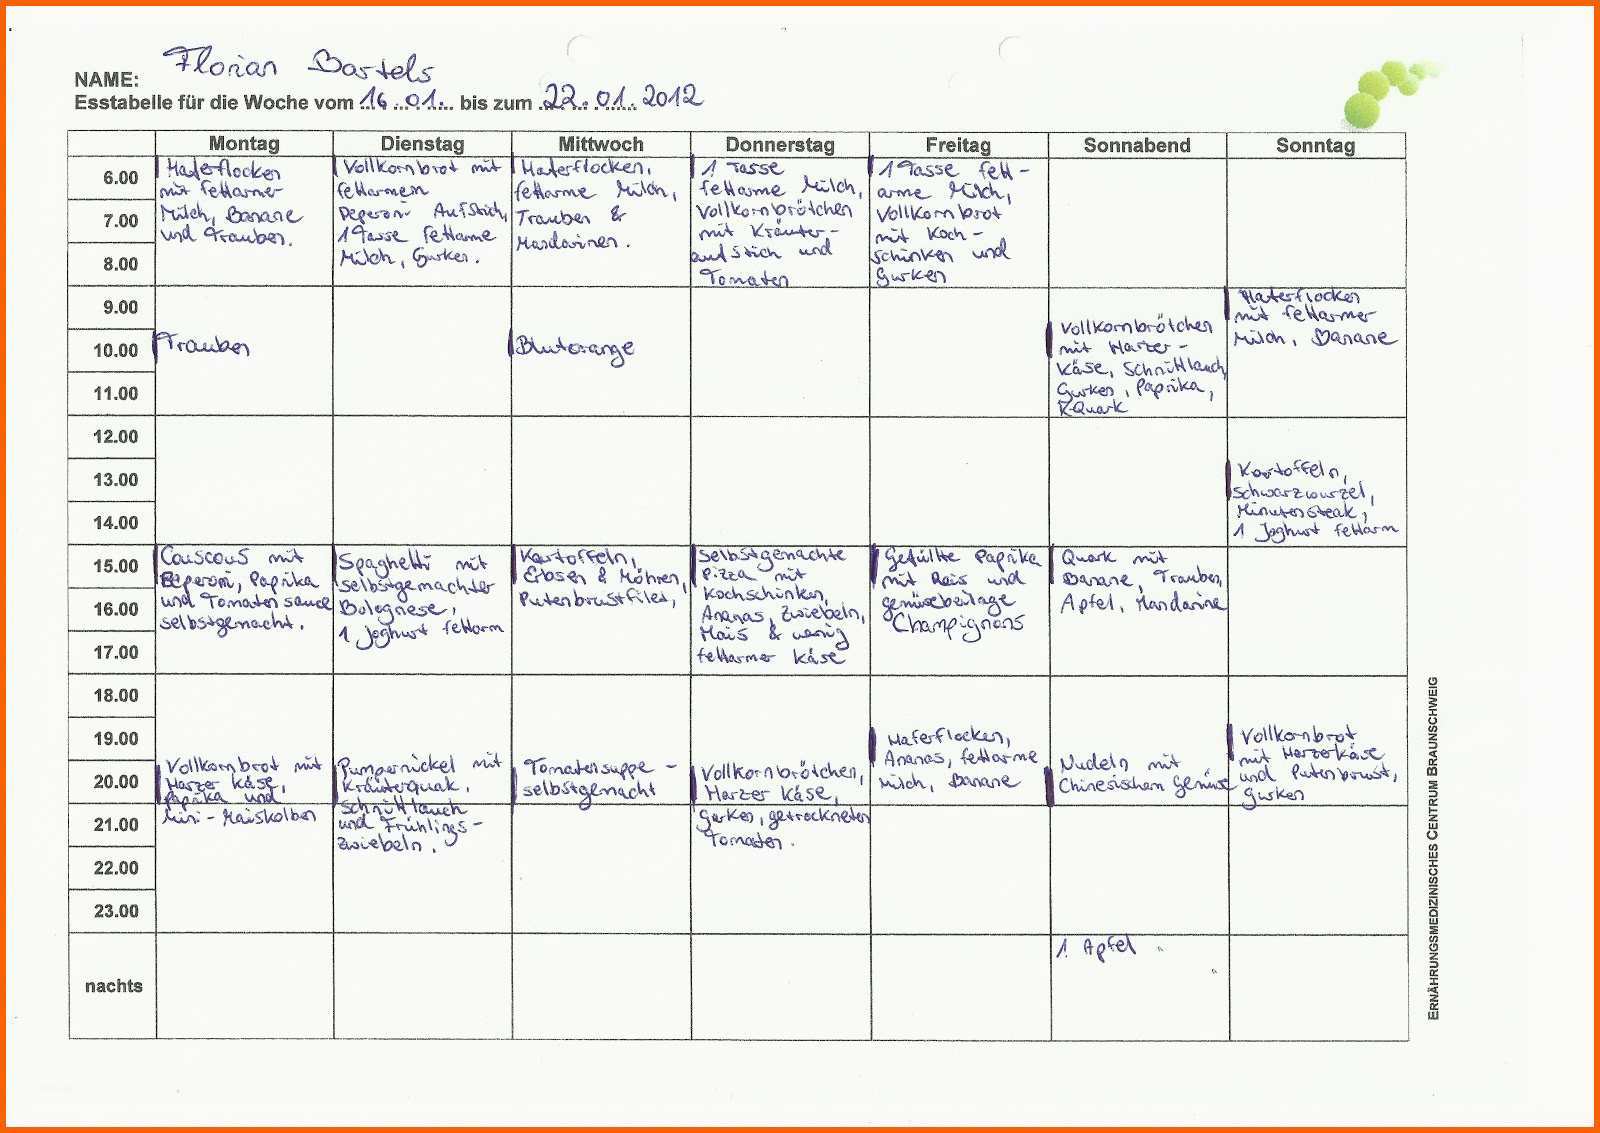 NAME: Florian Bartels
Esstabelle für die Woche vom 16.01. bis zum 22.01.2012
Montag Dienstag Mittwoch Donnerstag Freitag Sonnabend Sonntag
6.00
7.00
8.00
Haferflocken
mit fettarmer
Milch, Banane
und Trauben.
Vollkornbrot mit
fettarmem
Peperoni Aufstrich,
1 Tasse fettarme
Milch, Gurken.
Haferflocken,
fettarme Milch,
Trauben &
Mandarinen.
1 Tasse
fettarme Milch,
Vollkornbrötchen
mit Kräuter-
aufstich und
Tomaten
1 Tasse fett-
arme Milch,
Vollkornbrot
mit Koch-
schinken und
Gurken
9.00
10.00
11.00
Trauben
Blutorange
Vollkornbrötchen
mit Harzer-
Käse, Schnittlauch,
Gurken, Paprika,
K-Quark
Haferflocken
mit fettarmer
Milch, Banane
12.00
13.00
14.00
Kartoffeln,
Schwarzwurzel,
Minutensteak,
1 Joghurt fettarm
15.00
16.00
17.00
Couscous mit
Peperoni, Paprika
und Tomatensauce
selbstgemacht.
Spaghetti mit
selbstgemachter
Bolognese,
1 Joghurt fettarm
Kartoffeln,
Erbsen & Möhren,
Putenbrustfilet,
Selbstgemachte
Pizza mit
Kochschinken,
Ananas, Zwiebeln,
Mais & wenig
fettarmer Käse
Gefüllte Paprika
mit Reis und
gemüsebeilage
Champignons
Quark mit
Banane, Trauben,
Apfel, Mandarine
18.00
19.00
20.00
21.00
22.00
23.00
Vollkornbrot mit
Harzer Käse,
Paprika und
Mini-Maiskolben
Pumpernickel mit
Kräuterquak,
Schnittlauch
und Frühlings-
zwiebeln.
Tomatensuppe -
selbstgemacht
Vollkornbrötchen,
Harzer Käse,
Gurken, getrockneten
Tomaten.
Haferflocken,
Ananas, fettarme
Milch, Banane
Nudeln mit
Chinesischem Gemüse
Vollkornbrot
mit Harzerkäse
und Putenbrust,
Gurken
nachts
1 Apfel
ERNÄHRUNGSMEDIZINISCHES CENTRUM BRAUNSCHWEIG